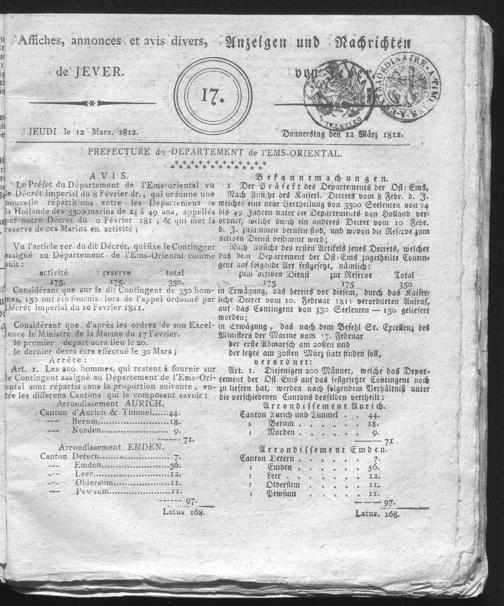 Affiches, annonces et avis divers,
de JEVER.
Anzeigen und Nachrichten
von Jever
17.
JEUDI le 12 Mars. 1812.
Donnerstag den 12 März 1812.
PREFECTURE du DEPARTEMENT de l'EMS-ORIENTAL.
AVIS.
Le Préfet du Département de l'Ems-oriental vu
le Décret imperial du 8 Février dr., qui ordonne une
nouvelle répartitions entre les Departements de
la Hollande des 3500 marins de 24 à 49 ans, appellés
par notre Décret du 10 Fevrier 181, & qui met la
reserve de ces Marins en activité;
Vu l'article 1er. du dit Décret, qui fixe le Contingent
assigné au Département de l'Ems-Oriental comme
suit:
activité reserve total
175. 175. 350.
Considérant que sur le dit Contingent de 350 hom-
mes, 150 ont été fournis lors de l'appel ordonné par
Décret imperial du 10 Fevrier 1811.
Considérant que d'après les ordres de son Excel-
lence le Ministre de la Marine du 17 Fevrier.
le premier depart aura lieu le 20.
le dernier devra être effectué le 30 Mars;
Arrête:
Art. 1. Les 200. hommes, qui restent à fournir sur
le Contingent assigné au Département de l'Ems-Ori-
ental sont répartis dans la proportion suivante, en-
tre les differens Cantons qui le composent savoir:
Arrondissement AURICH.
Canton d'Aurich & Timmel,....44.
— Berum............18.
— Norden............ 9.
71.
Arrondissement EMDEN.
Canton Detern............ 7.
— Emden............56.
— Leer............12.
— Oldersum............11.
— Pewsum............11.
97.
Latus 168.
Bekanntmachungen.
1 Der Präfekt des Departements der Ost-Ems,
Nach Ansicht des Kaiserl. Decrets vom 8 Febr. d. J.
welches eine neue Vertheilung von 3500 Seeleuten von 24
bis 49 Jahren unter die Departements von Holland ver-
ordnet, welche durch ein anderes Decret vom 10 Febr.
d. J. zusammen berufen sind, und wovon die Reserve zum
activen Dienst bestimmt wird;
Nach Ansicht des ersten Artikels jenes Decrets, welcher
das dem Departement der Ost-Ems zugetheilte Contin-
gent auf folgende Art festgesetzt, nämlich:
zum activen Dienst zur Reserve Total
175 175 350
in Erwägung, das bereits vor diesem, durch das Kaiser-
liche Decret vom 10. Februar 1811 verordneten Aufruf,
auf das Contingent von 350 Seeleuten — 150 geliefert
worden;
in Erwägung, das nach dem Befehl Sr. Excellenz des
Ministers der Marine vom 17. Februar
der erste Abmarsch am 20sten und
der letzte am 30sten März statt finden soll,
verordnet:
Art. 1. Diejenigen 200 Männer, welche das Depar-
tement der Ost-Ems auf das festgesetzte Contingent noch
zu liefern hat, werden nach folgendem Verhältniß unter
die verschiedenen Cantons desselben vertheilt:
Arrondissement Aurich.
Canton Aurich und Timmel . . 44.
" Berum . . . . . 18.
" Norden . . . . . 9.
71
Arrondissement Emden.
Canton Detern . . . . . 7.
" Emden . . . . . 56.
" Leer . . . . . 12.
" Oldersum . . . . . 11.
" Pewsum . . . . . 11.
97.
Latus. 168.